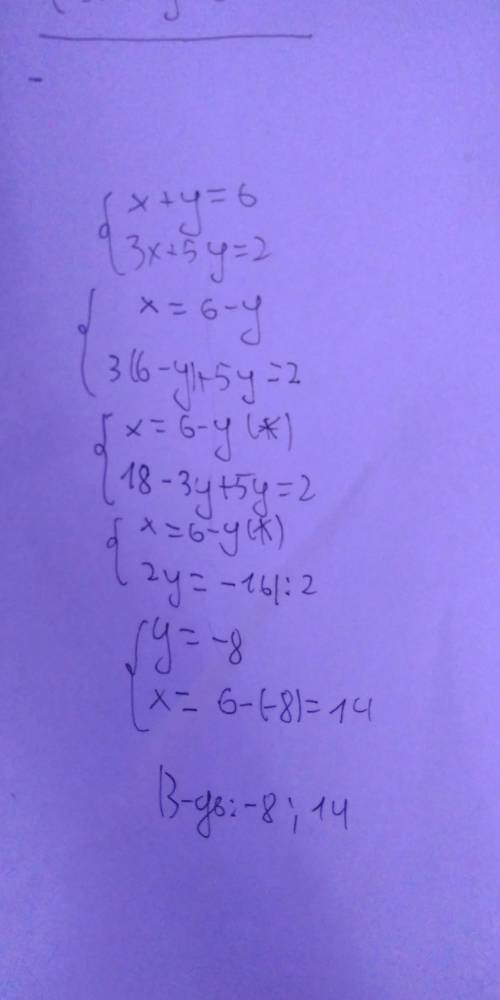 { x + y = 6
3x + 5y = 2
{ x = 6 - y
3(6 - y) + 5y = 2
{ x = 6 - y (*)
18 - 3y + 5y = 2
{ x = 6 - y (*)
2y = -16 |: 2
{ y = -8
x = 6 - (-8) = 14
В-дь: -8 ; 14